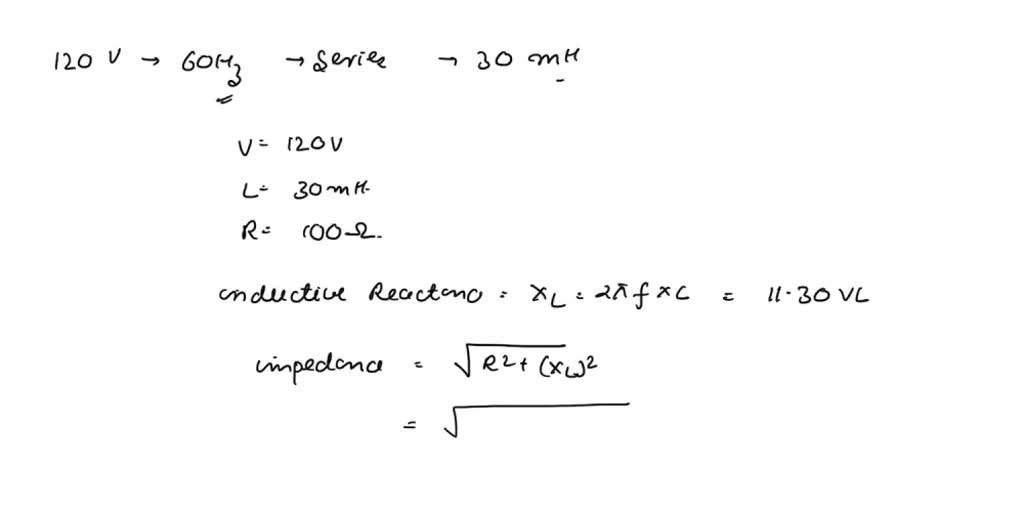 120 V → 60Hz → Series → 30 mH
V = 120V
L = 30mH.
R = 100Ω.
inductive Reactanc = XL = 2πf×L = 11.30 VL
impedance = √R²+(XL)²
= √